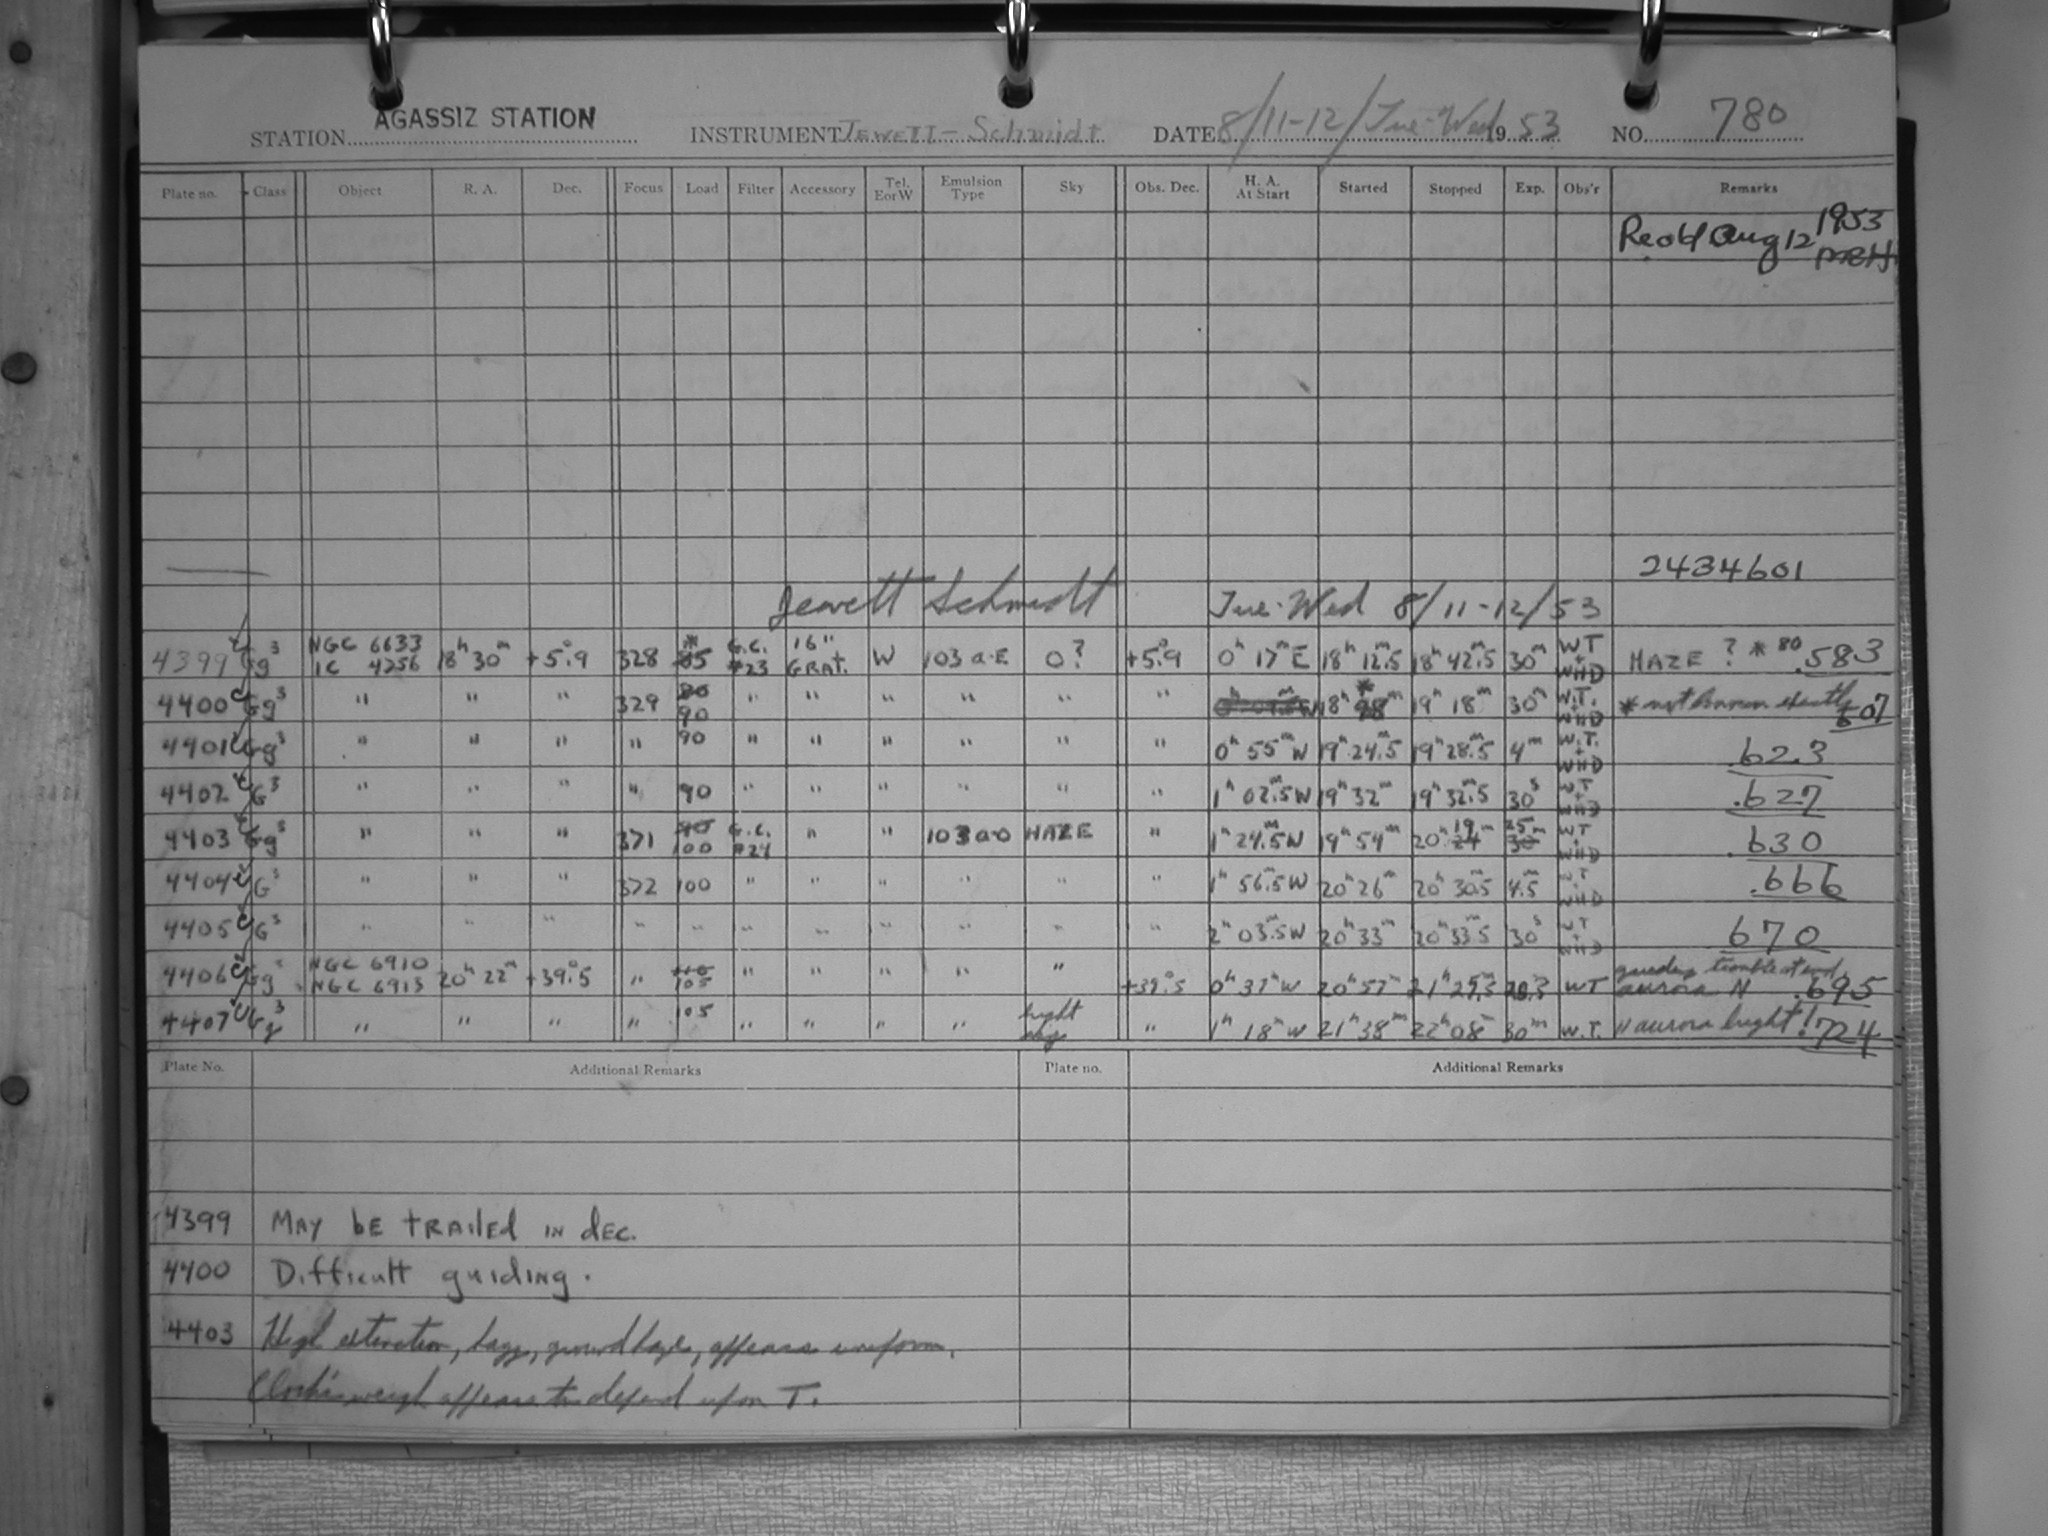 AGASSIZ STATION
STATION INSTRUMENT Jewett-Schmidt DATE 8/11-12/Tue-Wed 1953 NO. 780
Plate no. Class Object R. A. Dec. Focus Load Filter Accessory Tel. E or W Emulsion Type Sky Obs. Dec. H. A. At Start Started Stopped Exp. Obs'r Remarks
Rec'd Aug 12 1953
2434601
Jewett Schmidt Tue-Wed 8/11-12/53
4399 g3 NGC 6633 IC 4756 18h 30m +5°.9 328 * 85 G.C. #23 16" GRAT. W 103 a-E 0? +5°.9 0h 17m E 18h 12m.5 18h 42m.5 30m WT + WHD HAZE ? * 80 .583
4400 g3 " " " 329 80 90 " " " " " " 18h * 48m 19h 18m 30m W.T. + WHD * not known exactly 607
4401 g3 " " " " 90 " " " " " " 0h 55m W 19h 24.5 19h 28m.5 4m W.T. + WHD .623
4402 G3 " " " " 90 " " " " " " 1h 02m.5 W 19h 32m 19h 32m.5 30s WT + WHD .627
4403 g3 " " " 371 90 100 G.C. #24 " " 103 a-O HAZE " 1h 24m.5 W 19h 54m 20h 24 19m 30 25m WT + WHD .630
4404 G3 " " " 372 100 " " " " " " 1h 56m.5 W 20h 26m 20h 30m.5 4m.5 WT + WHD .666
4405 G3 " " " " " " " " " " " 2h 03m.5 W 20h 33m 20h 33m.5 30s WT + WHD 670
4406 g NGC 6910 NGC 6913 20h 22m +39°.5 " 110 105 " " " " " +39°.5 0h 37m W 20h 57m 21h 25m.3 28.3 WT guiding trouble at end, aurora N .695
4407 g3 " " " " 105 " " " " bright sky " 1h 18m W 21h 38m 22h 08m 30m W.T. N aurora bright! .724
Plate No. Additional Remarks Plate no. Additional Remarks
4399 MAY bE TRAILEd IN dEC.
4400 Difficult guiding.
4403 High extinction, hazy, ground haze, appears uniform.
appears to depend upon T.